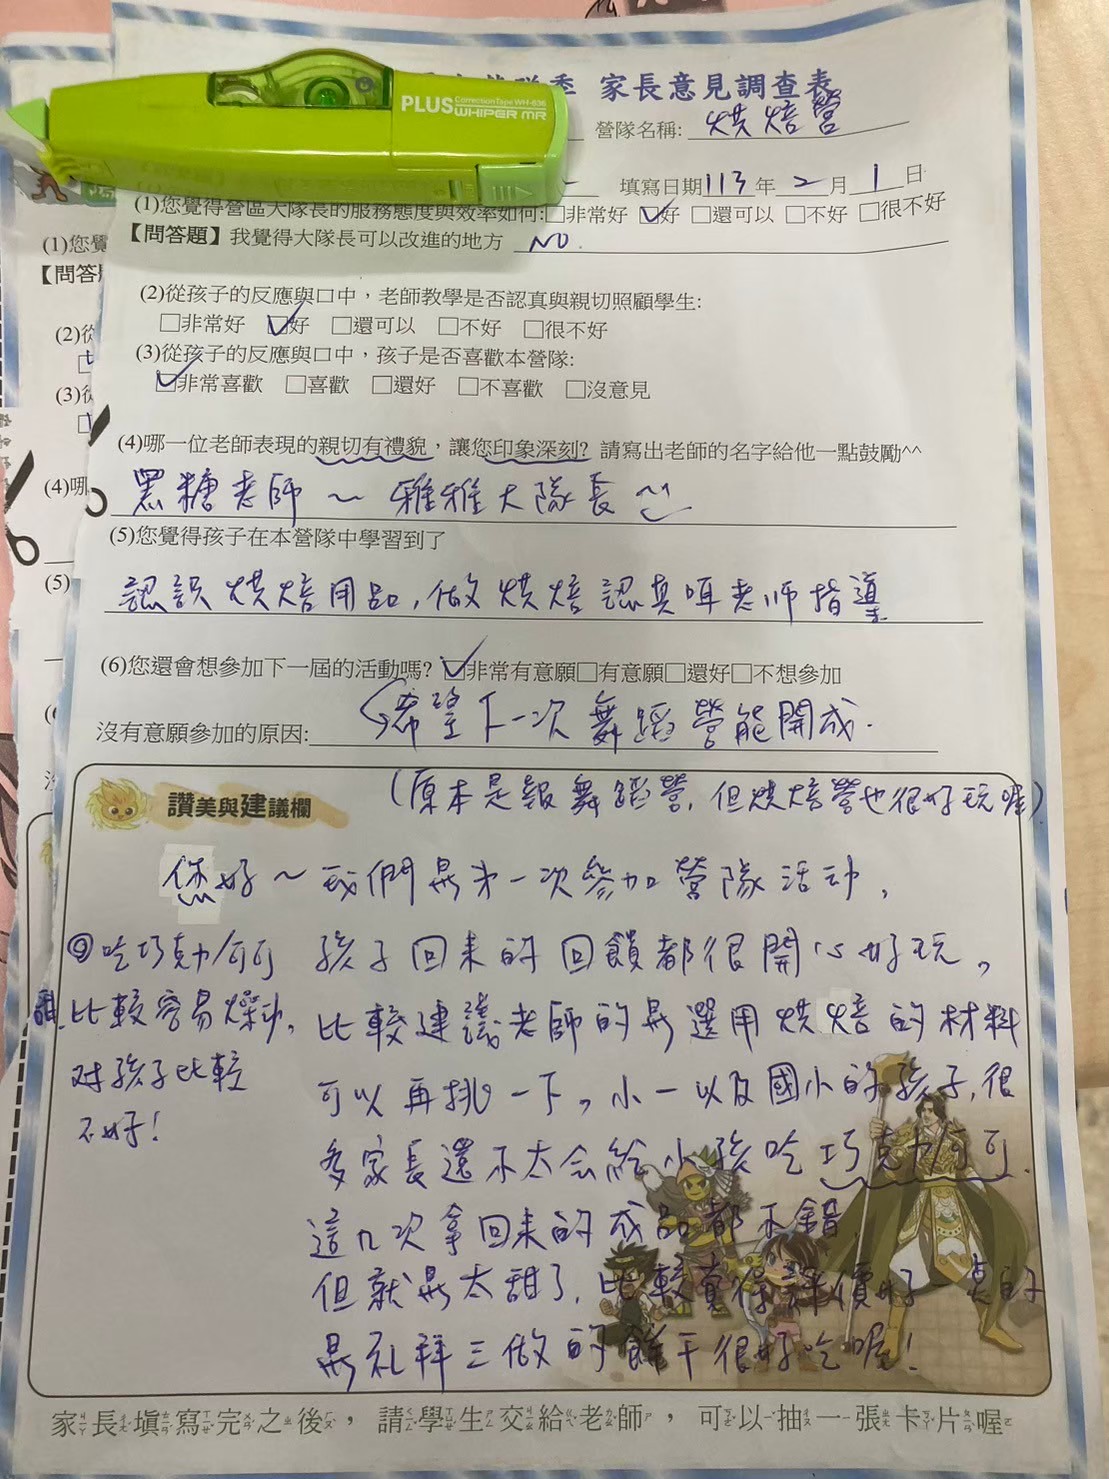 家長意見調查表
PLUS CorrectionTape WH-636
WHIPER MR
營隊名稱: 烘焙營
填寫日期113年2月1日
(1)您覺得營區大隊長的服務態度與效率如何:□非常好 ☑好 □還可以 □不好 □很不好
【問答題】我覺得大隊長可以改進的地方 NO.
(2)從孩子的反應與口中，老師教學是否認真與親切照顧學生:
□非常好 ☑好 □還可以 □不好 □很不好
(3)從孩子的反應與口中，孩子是否喜歡本營隊:
☑非常喜歡 □喜歡 □還好 □不喜歡 □沒意見
(4)哪一位老師表現的親切有禮貌，讓您印象深刻? 請寫出老師的名字給他一點鼓勵^^
黑糖老師～雅雅大隊長
(5)您覺得孩子在本營隊中學習到了
認識烘焙用品,做烘焙認真聽老师指導
(6)您還會想參加下一屆的活動嗎? ☑非常有意願□有意願□還好□不想參加
希望下一次舞蹈營能開成.
沒有意願參加的原因:
(原本是報舞蹈營,但烘焙營也很好玩喔)
讚美與建議欄
您好～我們是第一次參加營隊活动,
孩子回來的回饋都很開心好玩。
比較建議老師的是選用烘焙的材料
可以再挑一下。小一以及國小的孩子,很
多家長還不太会給小孩吃巧克力/可可.
這几次拿回來的成品都不錯
但就是太甜了,比較真得評價好 真的
是礼拜三做的餅干很好吃喔!
◎吃巧克力/可可
甜.比較容易燥动,
对孩子比較
不好!
家長填寫完之後，請學生交給老師，可以抽一張卡片喔
(1)您覺
【問答
(2)從
(3)從
(4)哪
(5)